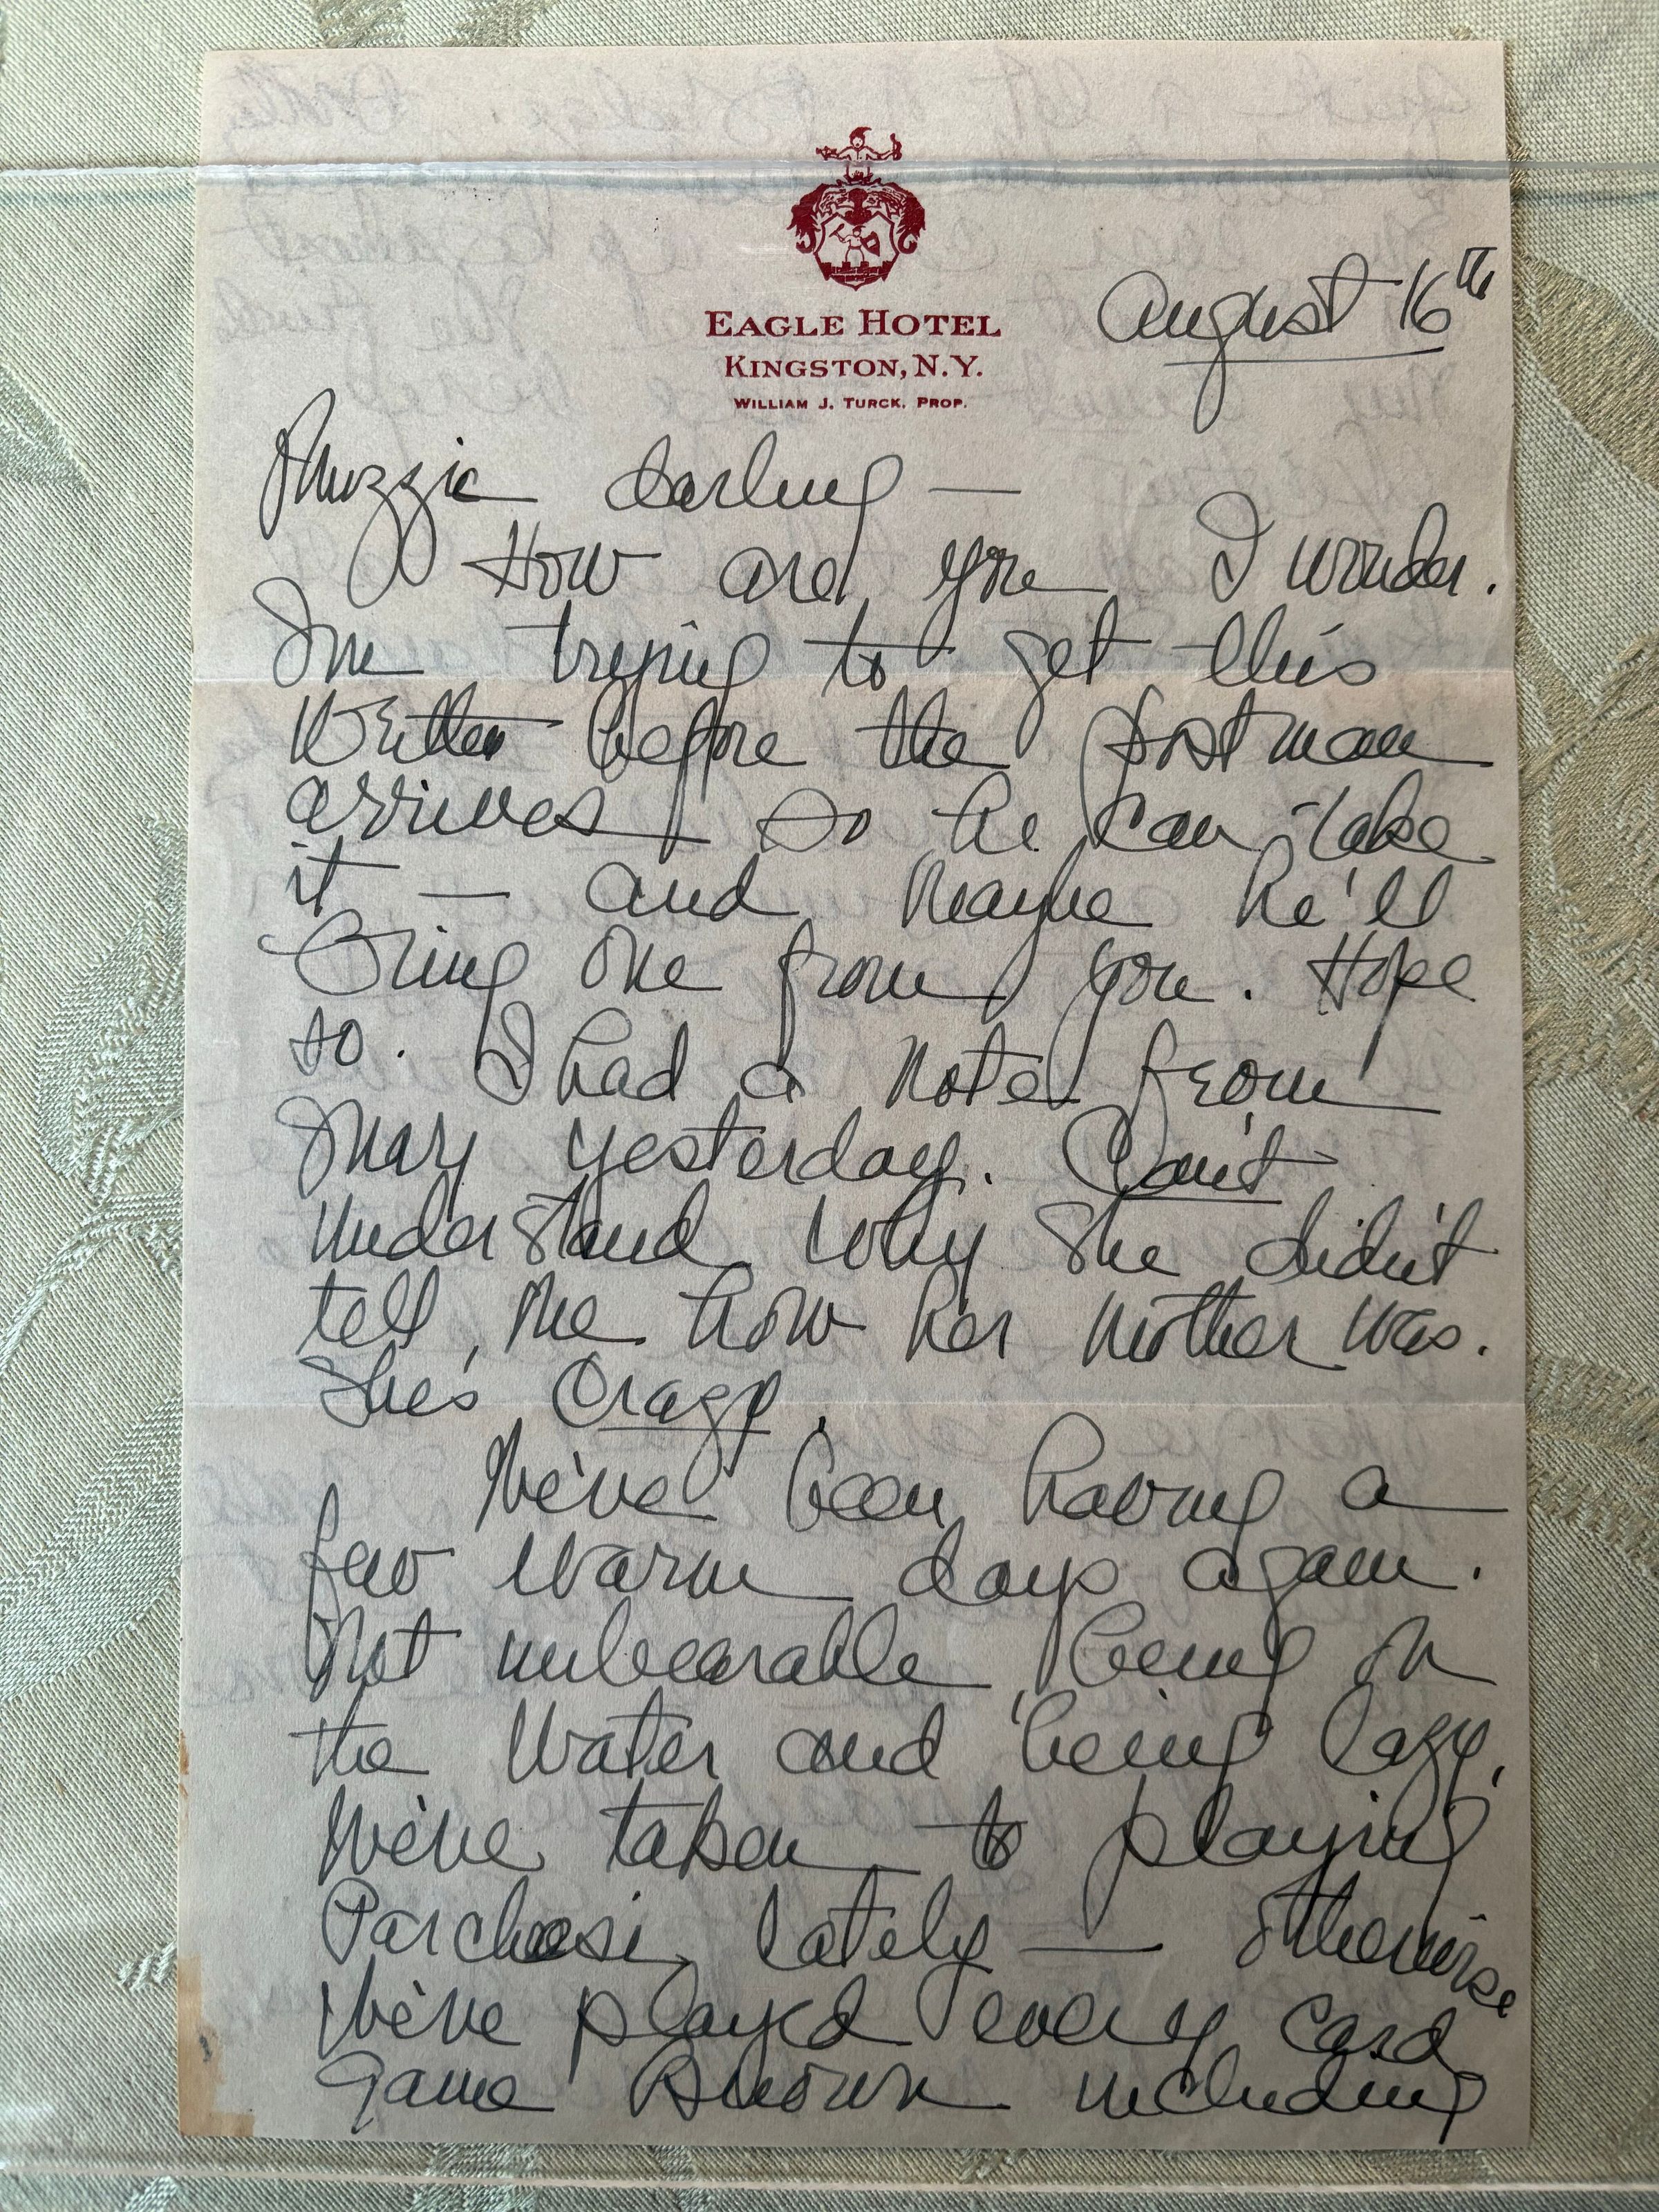 EAGLE HOTEL
KINGSTON, N.Y.
WILLIAM J. TURCK, PROP.
August 16th
Muzzie darling —
How are you I wonder.
I'm trying to get this
written before the postman
arrives so he can take
it — and maybe he'll
bring one from you. Hope
so. I had a note from
Mary yesterday. Can't
understand why she didn't
tell me how her mother was.
She's crazy.
We've been having a
few warm days again.
Not unbearable, being on
the water and being lazy.
We've taken to playing
Parchesi lately — otherwise
We've played every card
game known including